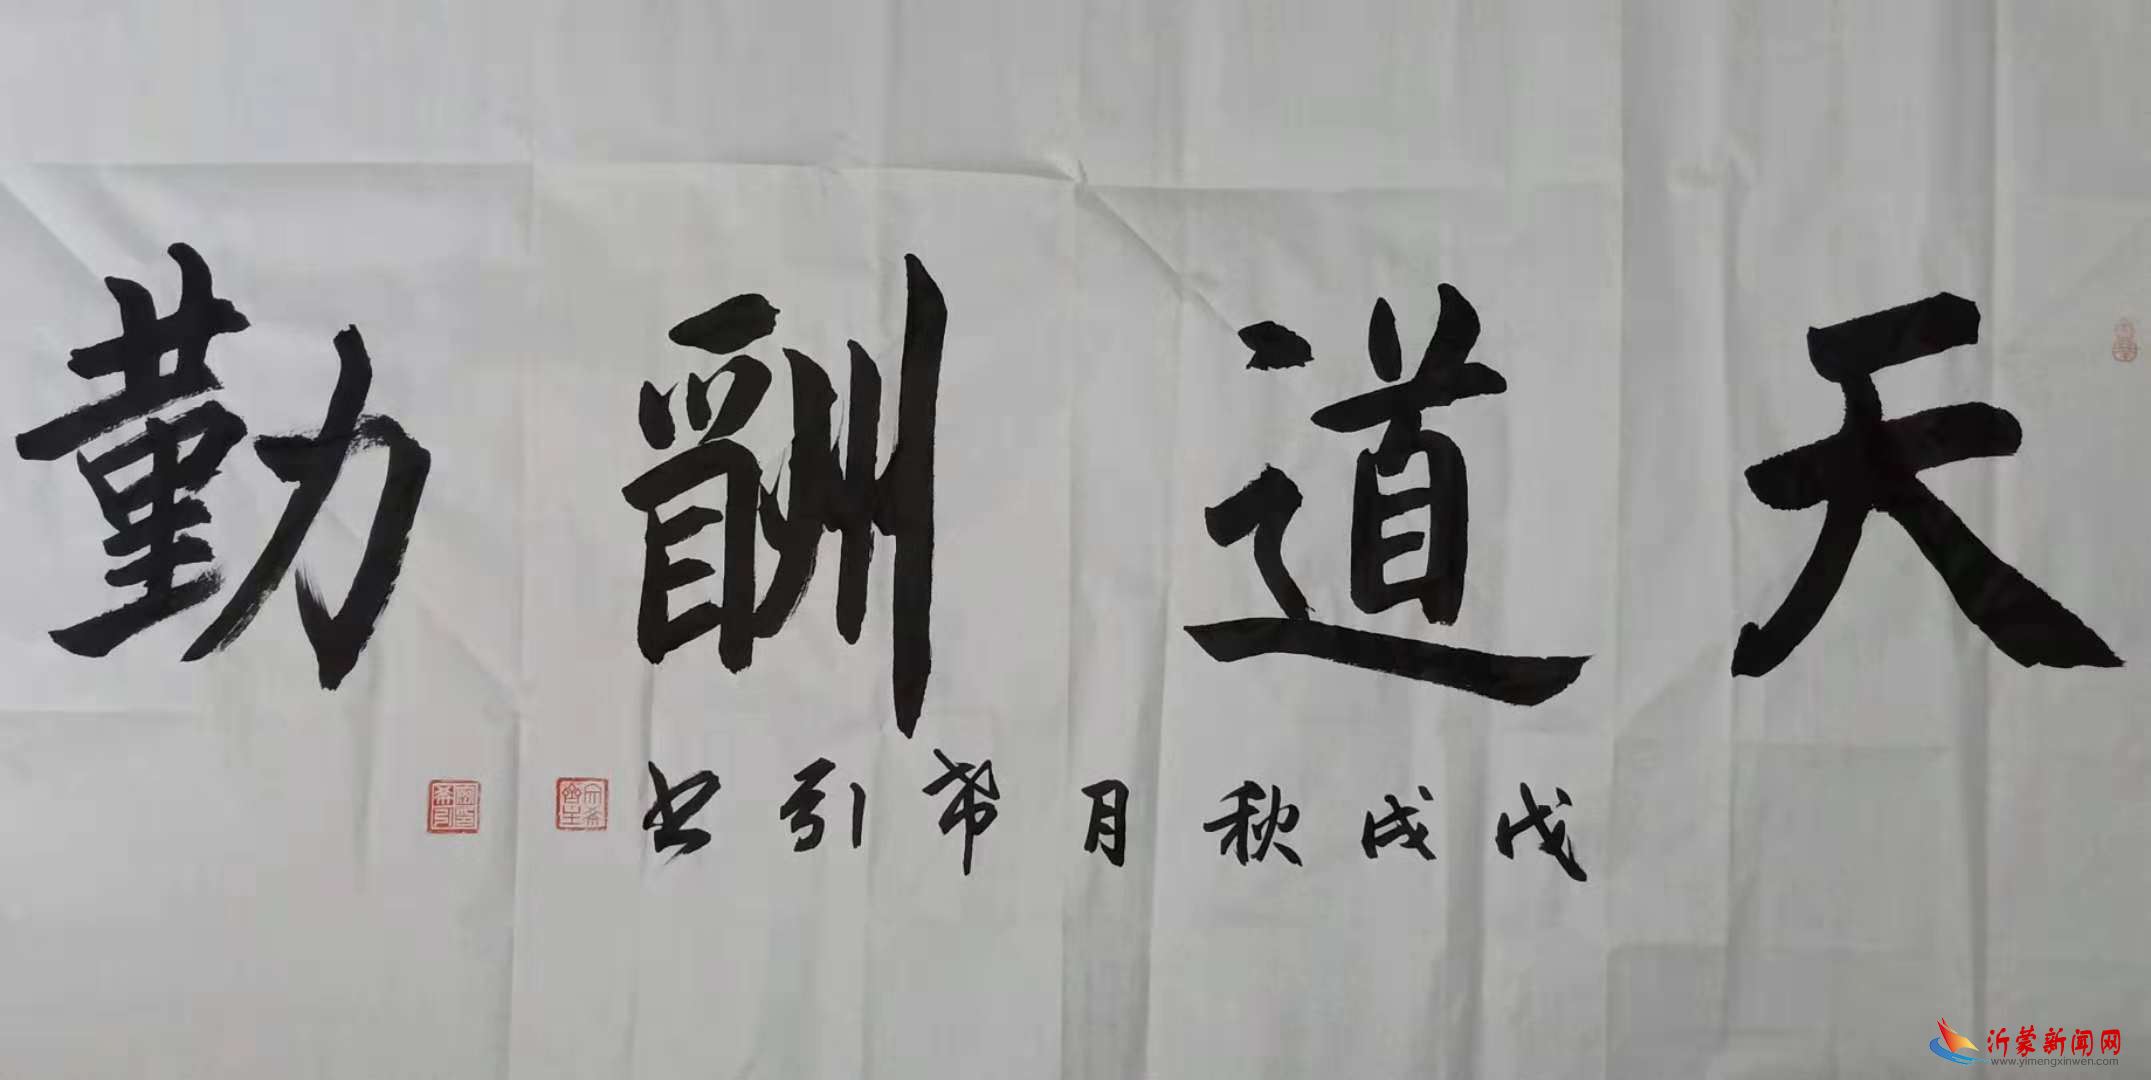 天道酬勤
戊戌秋月希引书
沂蒙新闻网
www.yimengxinwen.com